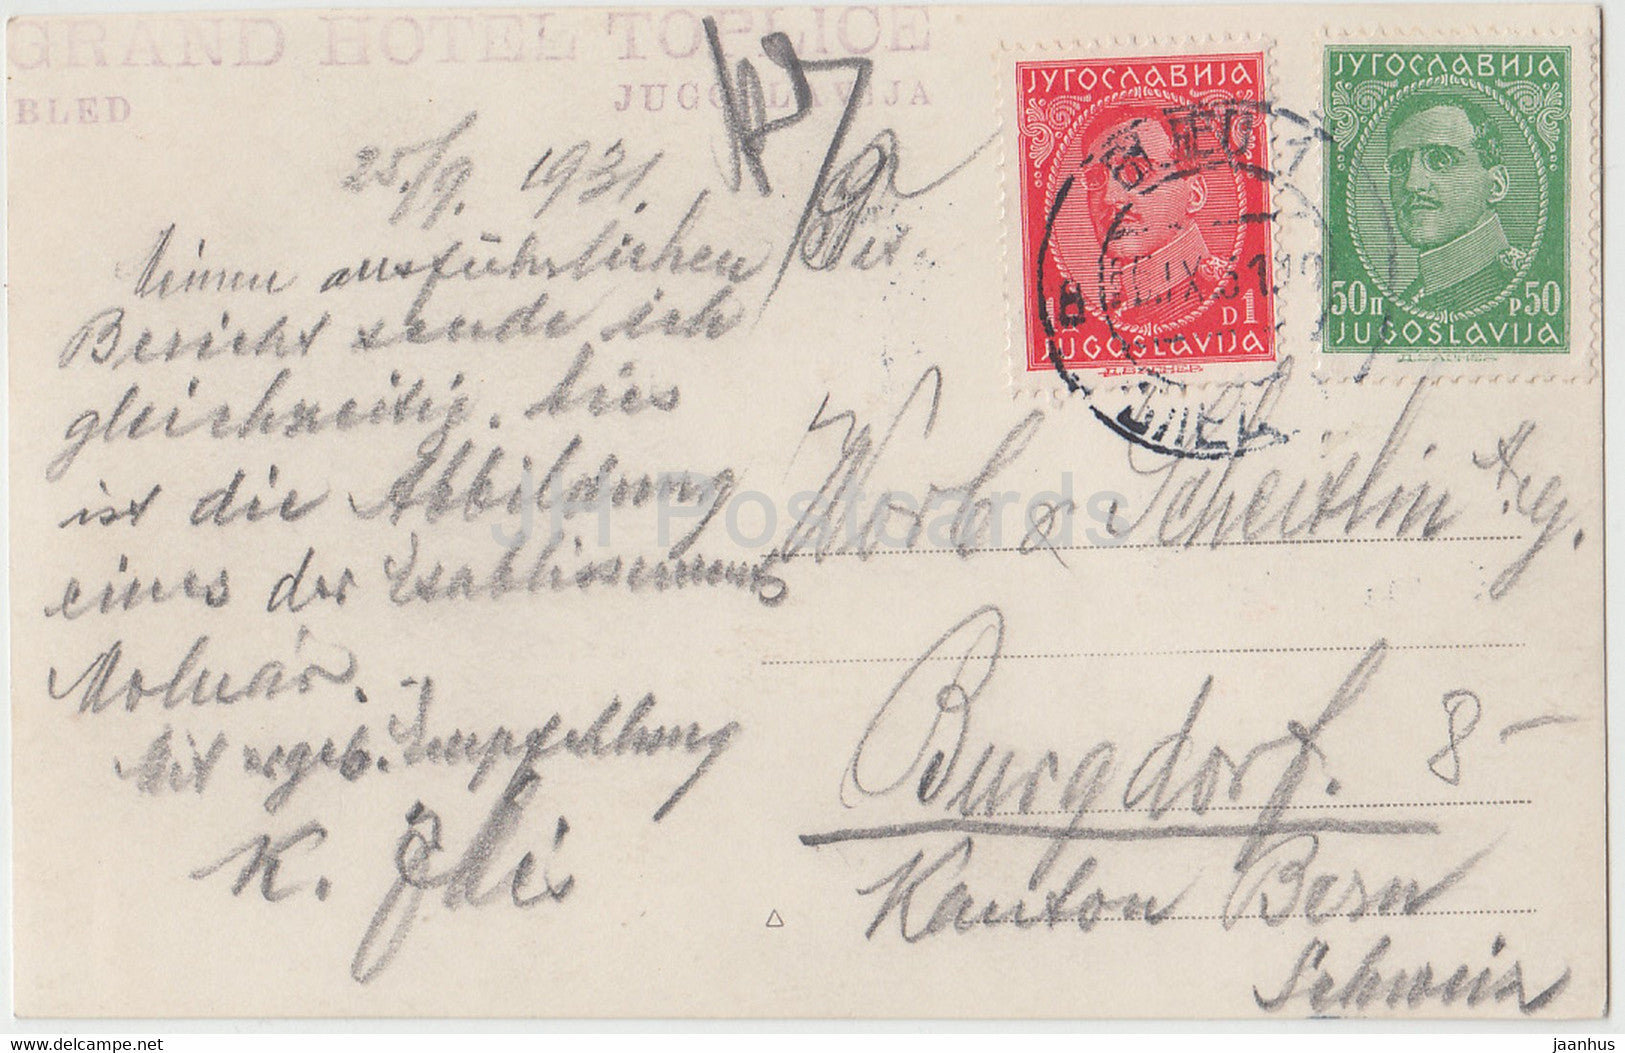 GRAND HOTEL TOPLICE
BLED JUGOSLAVIJA
25./9. 1931.
Meinen ausführlichen
Bericht sende ich
gleichzeitig. Dies
ist die Abbildung
eines der Etablissements
Molnár. -
Mit ergeb. Empfehlung
K.
ЈУГОСЛАВИЈА
1 D 1
JUGOSLAVIJA
ЈУГОСЛАВИЈА
50 П P 50
JUGOSLAVIJA
BLED 1
.IX.31
БЛЕД
Worb & Scheitlin A.g.
Burgdorf.
8 -
Kanton Bern
Schweiz
JH Postcards
www.delcampe.net
jaanhus